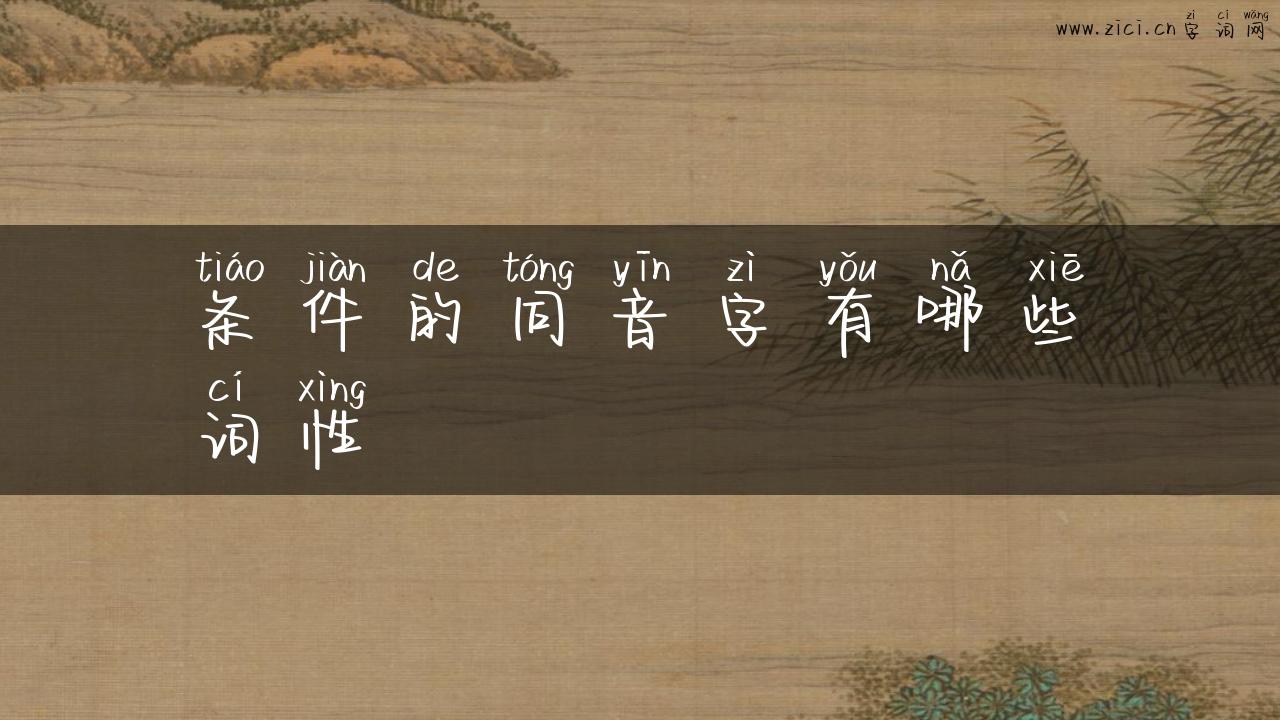 zì cí wǎng
www.zici.cn 字 词 网
tiáo jiàn de tóng yīn zì yǒu nǎ xiē
条 件 的 同 音 字 有 哪 些
cí xìng
词 性